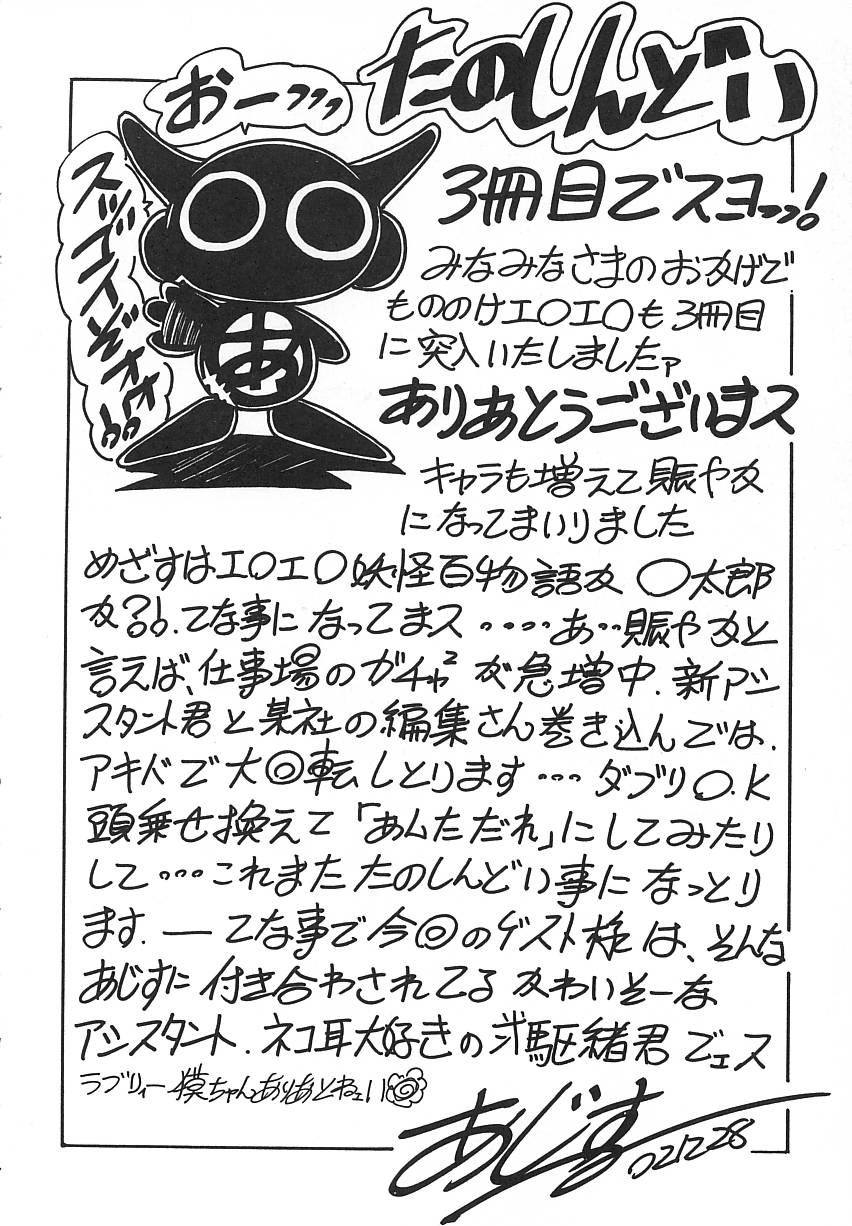 たのしんどい
おーっっっ
スッゴイぞォォ!!
あ
3冊目でスヨっっ!
みなみなさまのおかげで
もののけエ〇エ〇も3冊目
に突入いたしましたァ
ありがとうございまス
キャラも増えて賑やか
になってまいりました
めざすはエ〇エ〇妖怪百物語か 〇太郎
か?!.てな事になってまス・・・・あ・・賑やかと
言えば、仕事場のガチャ²が急増中.新アシ
スタント君と某社の編集さん巻き込んでは.
アキバで大回転しとります・・・ダブりO.K
頭乗せ換えて「あんただれ」にしてみたり
して・・・これまたたのしんどい事になっとり
ます.―てな事で今回のゲスト様は、そんな
あじすに付き合わされてるかわいそーな
アシスタント.ネコ耳大好きの 駆緒君でェス
ラブリィー模ちゃんありがとねェい
あじす 02.12.28